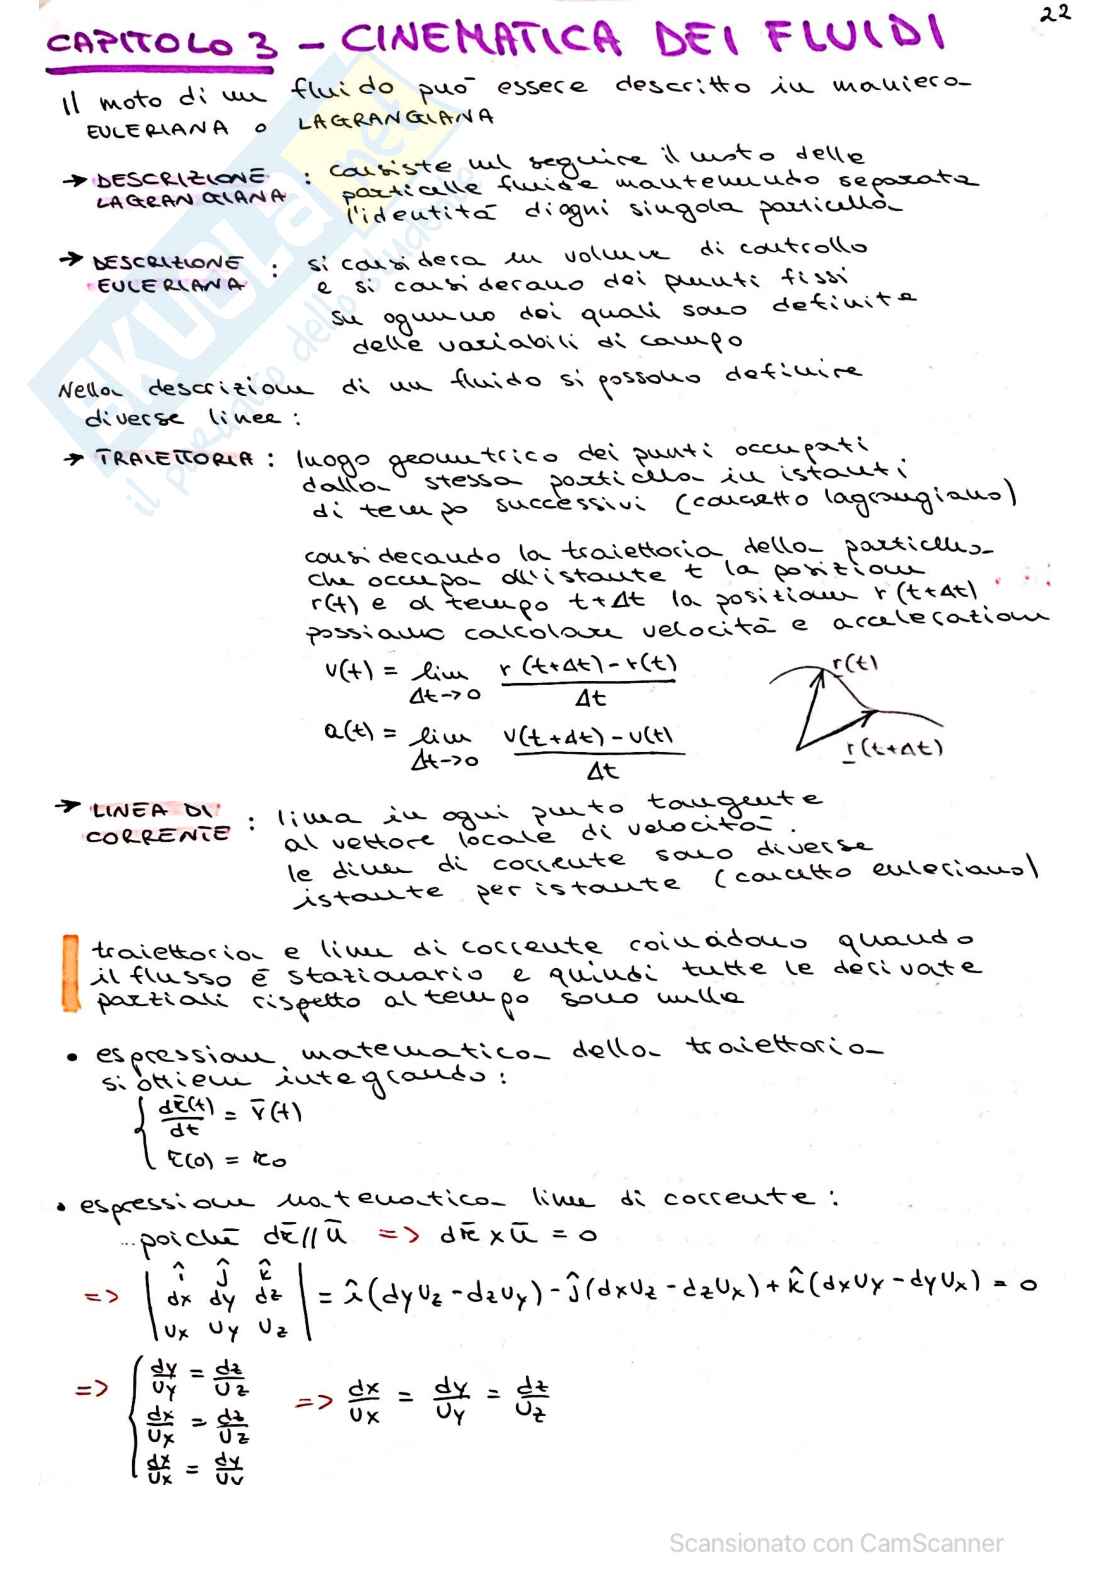 22
CAPITOLO 3 – CINEMATICA DEI FLUIDI
Il moto di un fluido può essere descritto in maniera
EULERIANA o LAGRANGIANA
→ DESCRIZIONE LAGRANGIANA : consiste nel seguire il moto delle
particelle fluide mantenendo separata
l'identità di ogni singola particella
→ DESCRIZIONE EULERIANA : si considera un volume di controllo
e si considerano dei punti fissi
su ognuno dei quali sono definite
delle variabili di campo
Nella descrizione di un fluido si possono definire
diverse linee :
→ TRAIETTORIA : luogo geometrico dei punti occupati
dalla stessa particella in istanti
di tempo successivi (concetto lagrangiano)
considerando la traiettoria della particella
che occupa all'istante t la posizione
r(t) e al tempo t+Δt la posizione r(t+Δt)
possiamo calcolare velocità e accelerazione
v(t) = lim Δt->0 r(t+Δt)-r(t) / Δt
r(t)
a(t) = lim Δt->0 v(t+Δt)-v(t) / Δt
r(t+Δt)
→ LINEA DI CORRENTE : linea in ogni punto tangente
al vettore locale di velocità.
le linee di corrente sono diverse
istante per istante (concetto euleriano)
traiettoria e linee di corrente coincidono quando
il flusso è stazionario e quindi tutte le derivate
parziali rispetto al tempo sono nulle
• espressione matematica della traiettoria
si ottiene integrando :
{ dr̄(t)/dt = v̄(t)
r(0) = r0
• espressione matematica linee di corrente :
...poiché dr̄ // ū => dr̄ x ū = 0
=> | î ĵ k̂
dx dy dz
Ux Uy Uz | = î(dyUz-dzUy)-ĵ(dxUz-dzUx)+k̂(dxUy-dyUx) = 0
=> { dy/Uy = dz/Uz
dx/Ux = dz/Uz
dx/Ux = dy/Uy
=> dx/Ux = dy/Uy = dz/Uz
SKUOLA.net
il paradiso dello studente
Scansionato con CamScanner